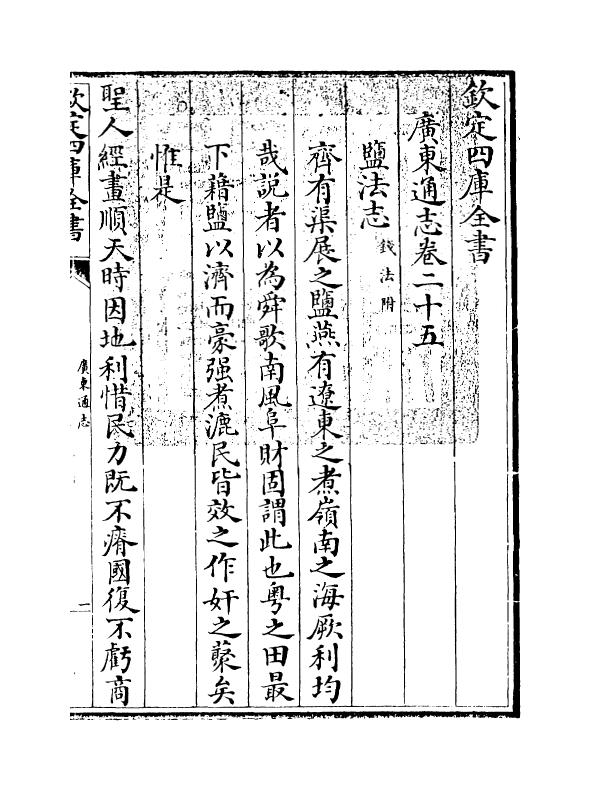 欽定四庫全書
廣東通志卷二十五
鹽法志 錢法附
齊有渠展之鹽燕有遼東之煮嶺南之海厥利均
哉説者以為舜歌南風阜財固謂此也粤之田最
下藉鹽以濟而豪强煮漉民皆效之作奸之藂矣
惟是
聖人經畫順天時因地利惜民力既不瘠國復不虧商
欽定四庫全書
廣東通志
一